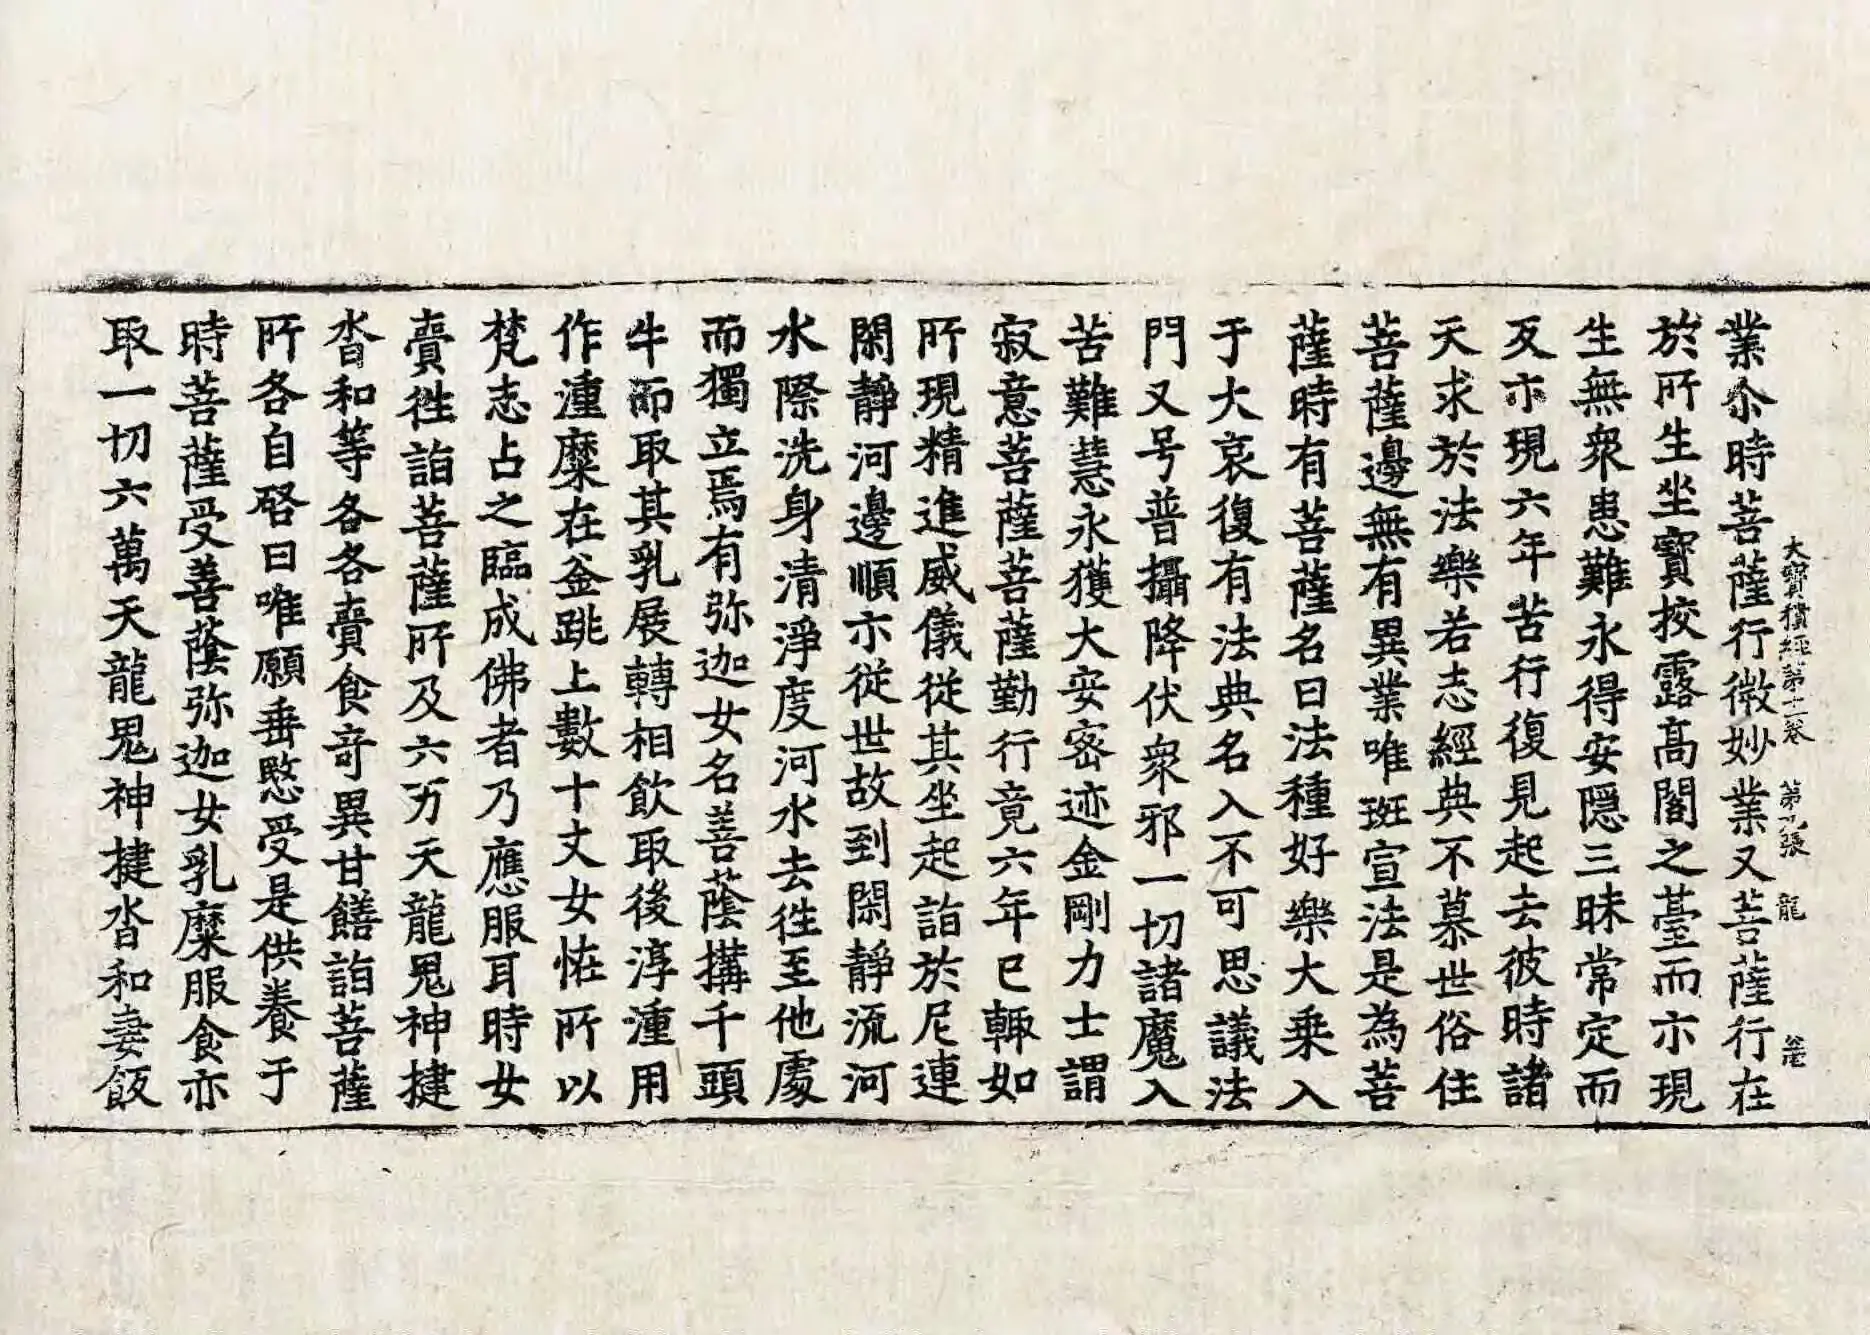 大寶積經第十一卷 第九張 龍
業尒時菩薩行微妙業又菩薩行在
於所生坐寶挍露高閣之臺而亦現
生無衆患難永得安隱三昧常定而
反亦現六年苦行復見起去彼時諸
天求於法樂若志經典不慕世俗住
菩薩邊無有異業唯班宣法是為菩
薩時有菩薩名曰法種好樂大乗入
于大哀復有法典名入不可思議法
門又号普攝降伏衆邪一切諸魔入
苦難慧永獲大安密迹金剛力士謂
寂意菩薩菩薩勤行竟六年已輙如
所現精進威儀從其坐起詣於尼連
閑靜河邊順亦從世故到閑靜流河
水際洗身清淨度河水去徃至他處
而獨立焉有弥迦女名善蔭搆千頭
牛而取其乳展轉相飲取後淳湩用
作湩糜在釜跳上數十丈女恠所以
梵志占之臨成佛者乃應服耳時女
賷徃詣菩薩所及六万天龍鬼神揵
沓和等各各賷食竒異甘饍詣菩薩
所各自啓曰唯願垂愍受是供養于
時菩薩受善蔭弥迦女乳糜服食亦
取一切六萬天龍鬼神揵沓和妻飯